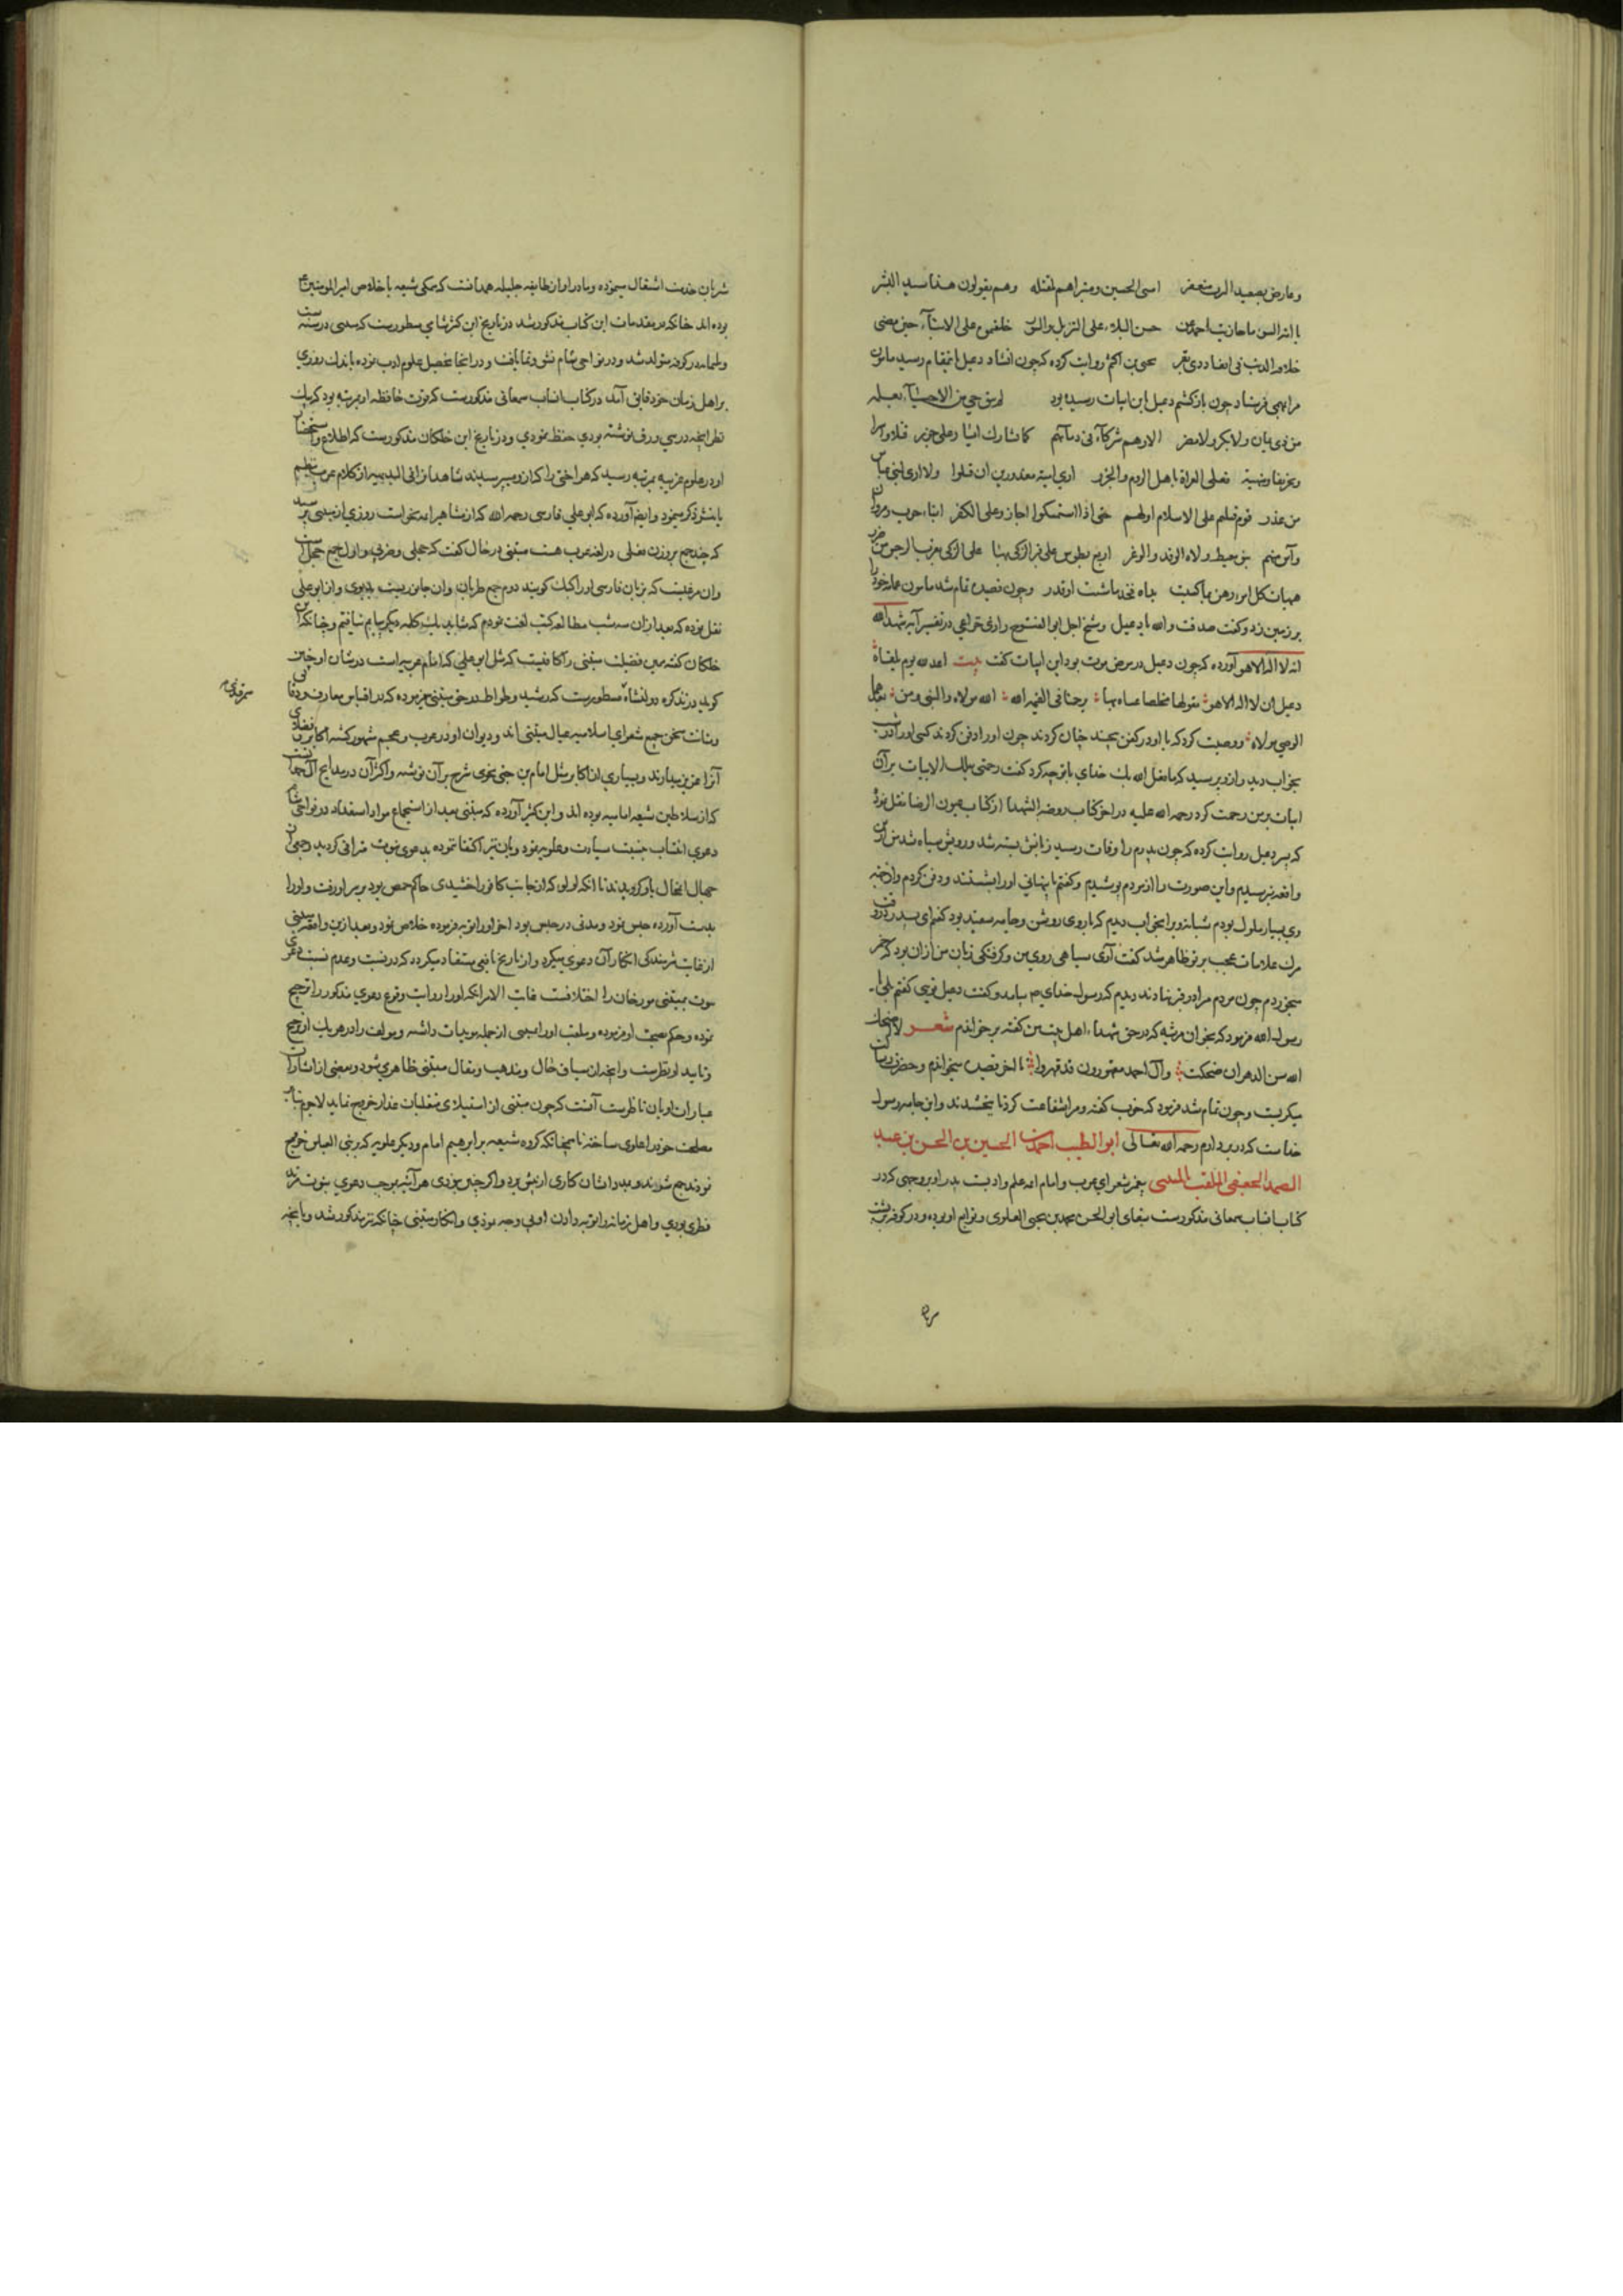 وعارض بصعید الترب منعفر امسی الحسین ومسراهم لمقتله وهم یقولون هذا سید البشر
یا امة السوء ما جازیت احمد عن حسن البلاء علی التنزیل والسور خلفتموه علی الابناء حین مضی
خلافة الذئب فی ابقار ذی بقر یحیی بن اکثم روایت کرده که چون انشاد دعبل باینمقام رسید مامون
مرا بمهمی فرستاد چون بازکشتم دعبل باین ابیات رسیده بود لم یبق حی من الاحیاء نعلمه
من ذی یمان ولا بکر ولا مضر الا وهم شرکاء فی دمائهم کما تشارک ایسار علی جزر قتلا واسرا
وتحریقا ومنهبة فعل الغزاة باهل الروم والخزر اری امیة معذورین ان قتلوا ولا اری لبنی عباس
من عذر قوم قتلتم علی الاسلام اولهم حتی اذا استمکنوا جازوا علی الکفر ابناء حرب ومروان
واسرتهم بنو معیط ولاة الحقد والوغر اربع بطوس علی قبر الزکی بها علی الزکی بقرب الرجس من ضرر
هیهات کل امرء رهن بما کسبت یداه فخذ ما شئت او فذر وچون قصیده تمام شد مامون عمامه خود را
بر زمین زد وکفت صدقت والله یا دعبل وشیخ اجل ابو الفتوح رازی خزاعی در تفسیر آیه شهد الله
انه لا اله الا هو آورده که چون دعبل در مرض موت بود این ابیات کفت بیت اعد لله یوم یلقاه
دعبل ان لا اله الا هو یقولها مخلصا عساه بها یرحمه فی القیمه الله الله مولاه والنبی ومن بعدهما
الوصی مولاه ووصیت کرد که با او در کفن نهند چنان کردند چون او را دفن کردند کسی او را در شب
بخواب دید واز وی پرسید که ما فعل الله بک خدای با تو چه کرد کفت رحمنی بتلک الابیات بر آن
ابیات بر من رحمت کرد رحمه الله علیه در آخر کتاب روضة الشهدا از کتاب عیون الرضا نقل نموده
که پسر دعبل روایت کرده که چون پدرم را وفات رسید زبانش بسته شد ورویش سیاه شد من ازین
واقعه بترسیدم واین صورت را از مردم پوشیدم وکفتم تا پنهانی او را بشستند ودفن کردم واز جهة
وی بسیار ملول بودم شبانه ویرا بخواب دیدم که با روی روشن وجامه سفید بود کفتم ای پدر در وقت
مرک علامات عجب بر تو ظاهر شد کفت آری سیاهی روی من وکرفتکی زبان من از آن بود که خمر
میخوردم چون مردم مرا در قبر نهادند دیدم که رسول خدای ص بیامد وکفت دعبل تویی کفتم بلی یا
رسول الله فرمود که بخوان مرثیه که در حق شهداء اهل بیت من کفته برخواندم شعر لا اضحک
الله سن الدهر ان ضحکت وآل احمد مقهورون قد قهروا تا آخر قصیده میخواندم وحضرت رسالت
میکریست وچون تمام شد فرمود که خوب کفته ومرا شفاعت کرد تا ببخشیدند واین جامه رسول
خداست که در بر دارم رحمه الله تعالی ابو الطیب احمد بن الحسین بن الحسن بن عبد
الصمد الجعفی الملقب بالمتنبی پیغمبر شعرای عرب وامام ائمه علم وادبست پدر او بر وجهی که در
کتاب انساب سمعانی مذکورست سقای ابو الحسن محمد بن یحیی العلوی وتوابع او بوده ودر کوفه
شربان خدمت اشتغال مینموده ومادر او از طایفه جلیله همدانست که همکی شیعه با خلاص امیر المومنین ع
بوده اند چنانکه در مقدمات این کتاب مذکور شد در تاریخ ابن کثیر شامی مسطورست که متنبی در سنه
وثلثمایه در کوفه متولد شد ودر نواحی شام نشو ونما یافت ودر آنجا تحصیل علوم ادب نموده باندک روزی
بر اهل زمان خود فایق آمد در کتاب انساب سمعانی مذکورست که قوت حافظه او بمرتبه بود که بیک
نظر آنچه در سی ورق نوشته بودی حفظ نمودی ودر تاریخ ابن خلکان مذکورست که اطلاع واستحضار
او در علوم عربیه بمرتبه رسید که هر لغتی را که ازو میپرسیدند شاهد آنرا فی البدیهه از کلام عرب بنظم
یا بنثر ذکر مینمود وایضا آورده که ابو علی فارسی رحمه الله که از مشاهیر ائمه نحو است روزی از متنبی پرسید
که چند جمع بر وزن فعلی در لغة عرب هست متنبی در حال کفت که حجلی وظربی واول جمع حجل است
وآن مرغیست که بزبان فارسی او را کبک کویند ودوم جمع ظربان وآن جانوریست بدبوی واز ابو علی
نقل نموده که بعد از آن سه شب مطالعه کتب لغت نمودم که شاید یک کلمه دیکر بیابم نیافتم وچنانکه ابن
خلکان کفته همین فضیلت متنبی را کافیست که مثل ابو علی که امام عربیه است در شان او چنین
کوید ودر تذکره دولتشاه مسطورست که رشید وطواط در حق متنبی میفرموده که در اقتباس معارف ودقایق
ومتانت سخن جمیع شعرای اسلامیه عیال متنبی اند ودیوان او در عرب وعجم مشهور کشته اکابر وفضلای
آنرا عزیز میدارند وبسیاری از اکابر مثل امام بن جنی نحوی شرح بر آن نوشته واکثر آن در مدایح آل حمدانست
که از سلاطین شیعه امامیه بوده اند وابن کثیر آورده که متنبی بعد از استجماع مواد استعداد در نواحی شام
دعوی انتساب بنسبت سیادت وعلویه نمود وبآن نیز اکتفا ننموده بدعوی نبوت مترقی کردید وجمعی از
جهال آنحال باو کرویدند تا آنکه لولو که از جانب کافور اخشیدی حاکم حمص بود بر سر او رفت واو را
بدست آورده حبس نمود ومدتی در حبس بود آخر او را توبه فرموده خلاص نمود وبعد ازین واقعه متنبی
از غایت شرمندکی انکار آن دعوی میکرد واز تاریخ یافعی مستفاد میکردد که در نسبت وعدم نسبت دعوی
نبوت بمتنبی مورخان را اختلافست غایت الامر آنکه او را روایت وقوع دعوی مذکور را ترجیح
نموده وحکم بصحت او فرموده وملقب او را بمتنبی از جمله مویدات دانسته ومولف را در هر یک از ترجیح
وتایید او نظرست وآنچه از سیاق حال ومذهب ومقال متنبی ظاهر میشود وبعضی از اشارات
عبارات او بآن ناظرست آنست که چون متنبی از استیلای متغلبات غدار خروج نماید لاجرم بنا بر
مصلحت خود را علوی ساخته تا همچنانکه کروه شیعه بر ابراهیم امام ودیکر علویه که بر بنی العباس خروج
نمودند جمع شوند وبمدد ایشان کاری از پیش برد واکر چنین نبودی هر آینه بموجب دعوی نبوت مرتد
فطری بودی واهل زمانه را توبه دادن او بی وجه نمودی وانکار متنبی چنانکه نیز مذکور شد وبآنچه
سمرقندی